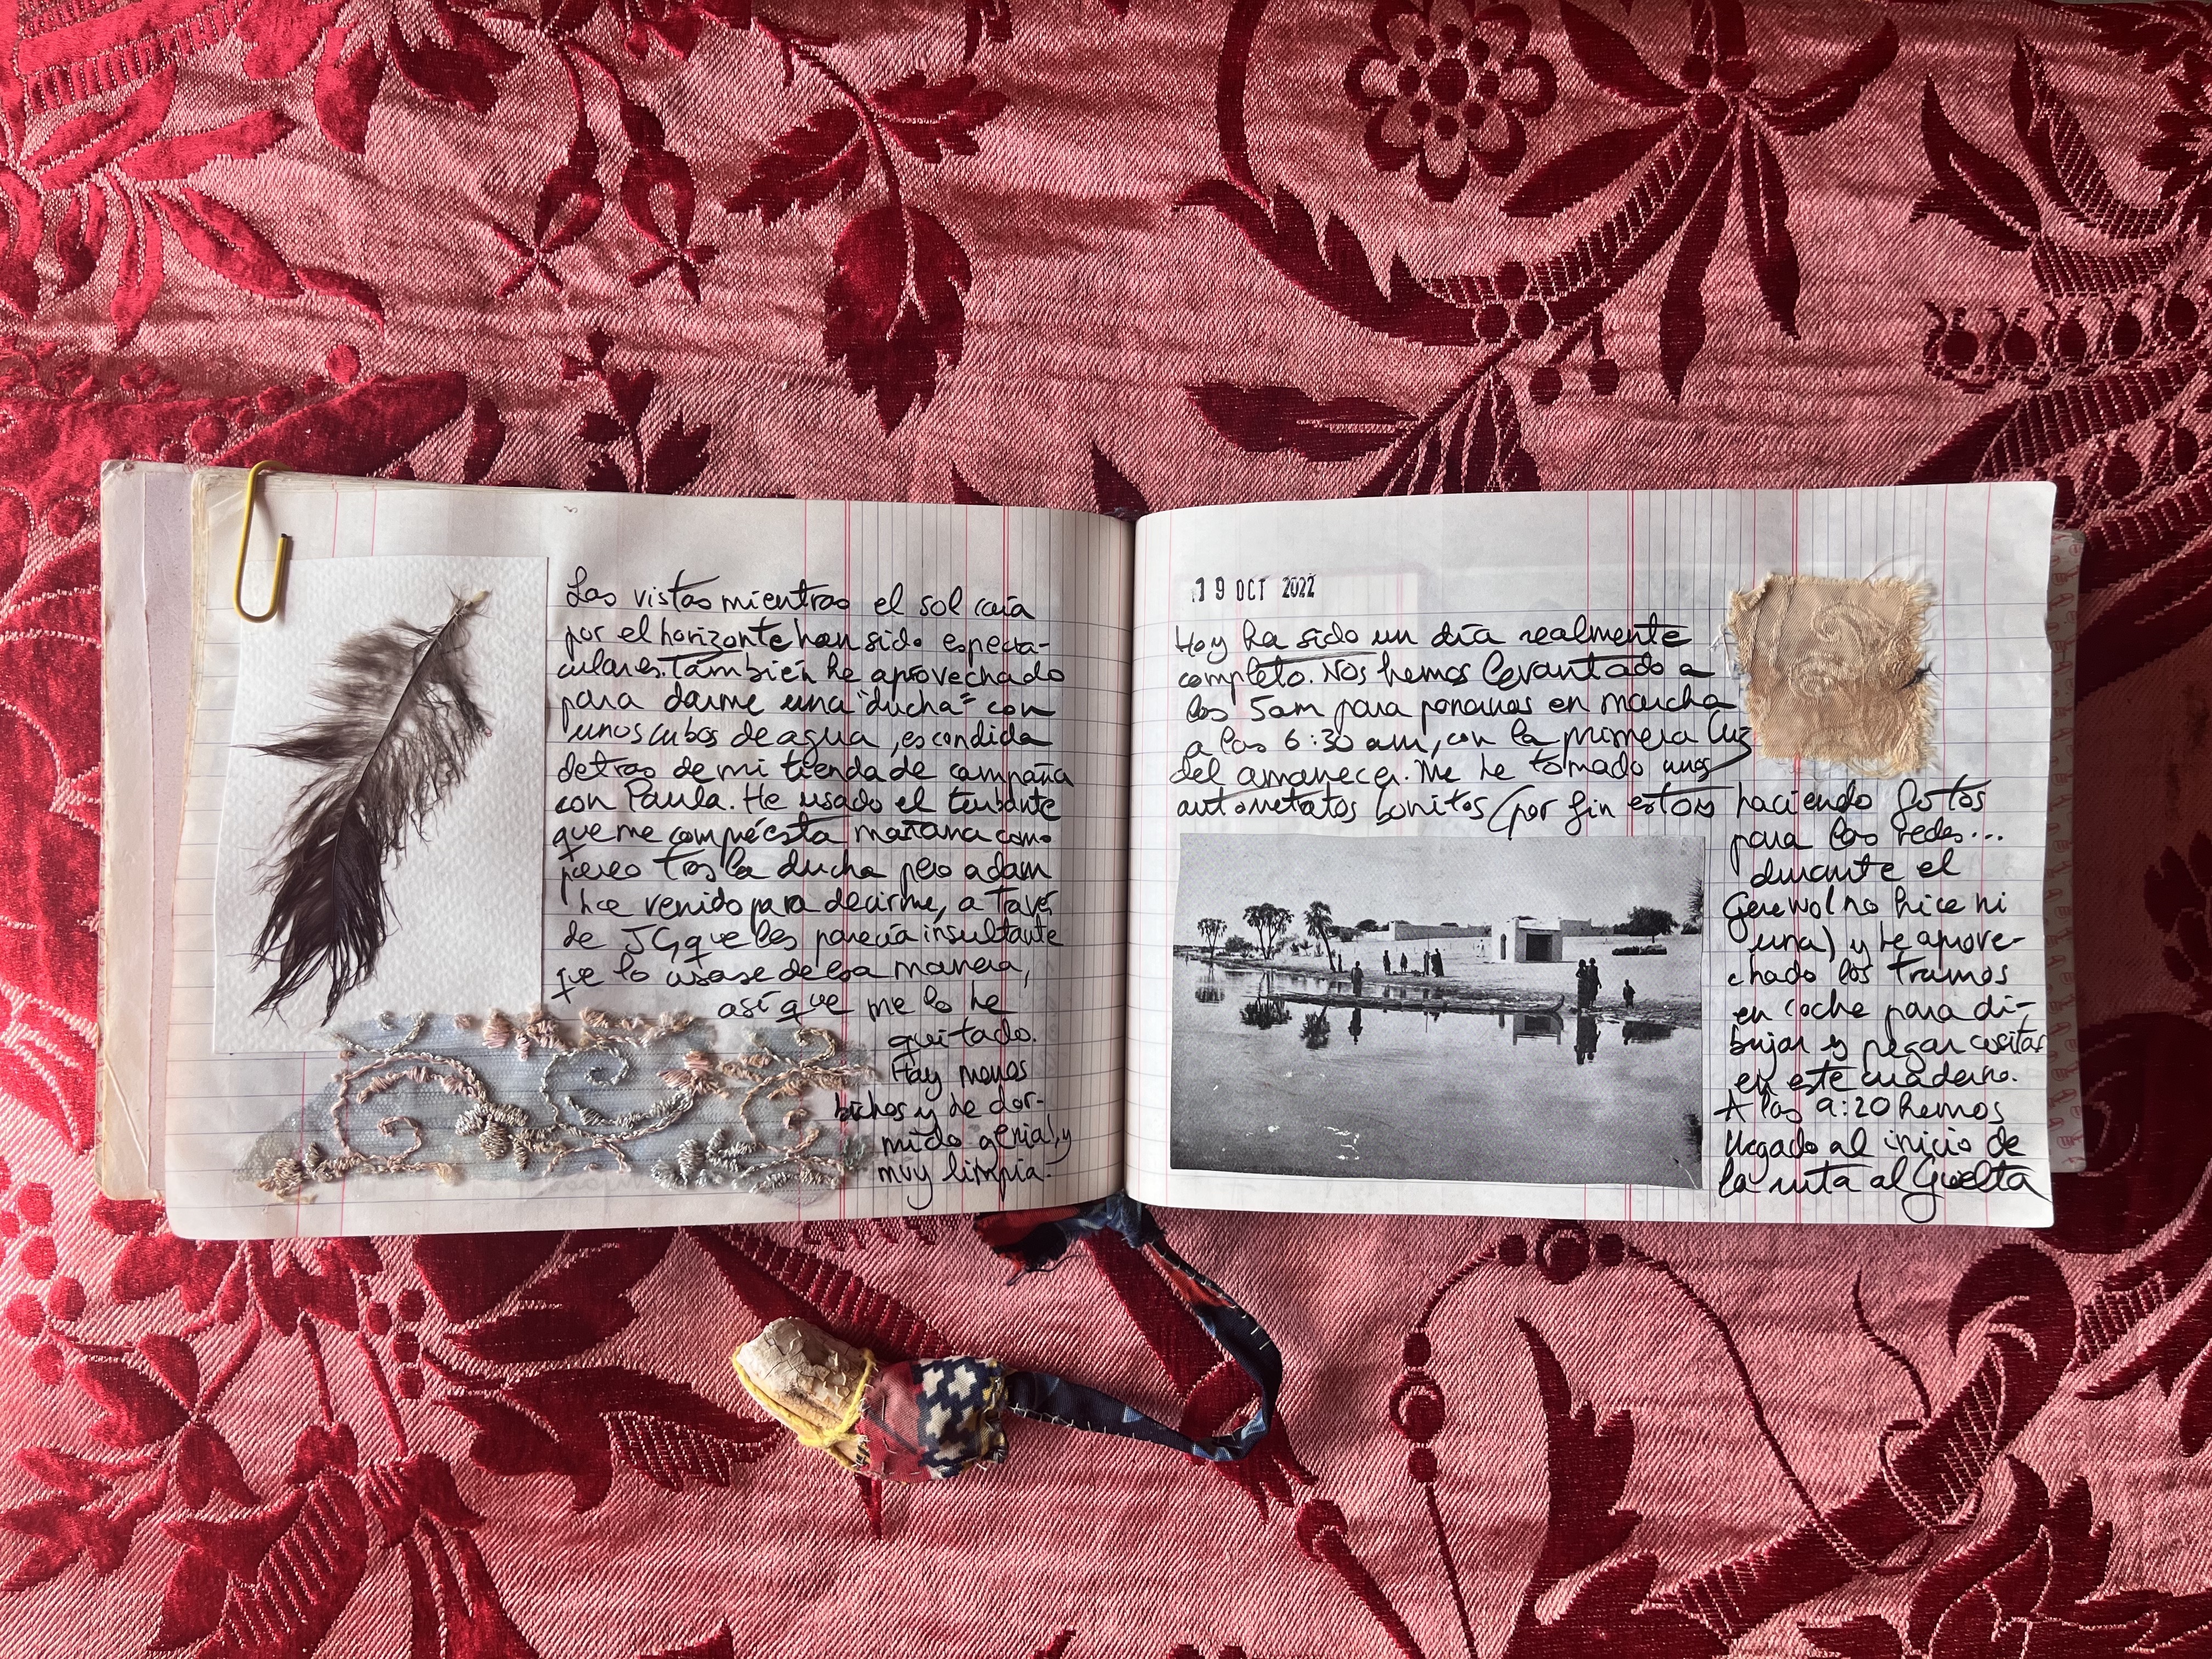 Las vistas mientras el sol caía
por el horizonte han sido especta-
culares. También he aprovechado
para darme una "ducha" con
unos cubos de agua, escondida
detras de mi tienda de campaña
con Paula. He usado el turbante
que me compré esta mañana como
pareo tras la ducha pero adam
ha venido para decirme, a través
de JG, que les parecía insultante
que lo usase de esa manera,
así que me lo he
quitado.
Hay menos
bichos y he dor-
mido genial y
muy limpia.
19 OCT 2022
Hoy ha sido un día realmente
completo. Nos hemos levantado a
las 5am para ponernos en marcha
a las 6:30 am, con la primera luz
del amanecer. Me he tomado unos
autorretatos bonitos (por fin estoy haciendo fotos
para las redes...
durante el
Gerewol no hice ni
una) y he aprove-
chado los tramos
en coche para di-
bujar y pegar cositas
en este cuaderno.
A las 9:20 hemos
llegado al inicio de
la ruta al Guelta